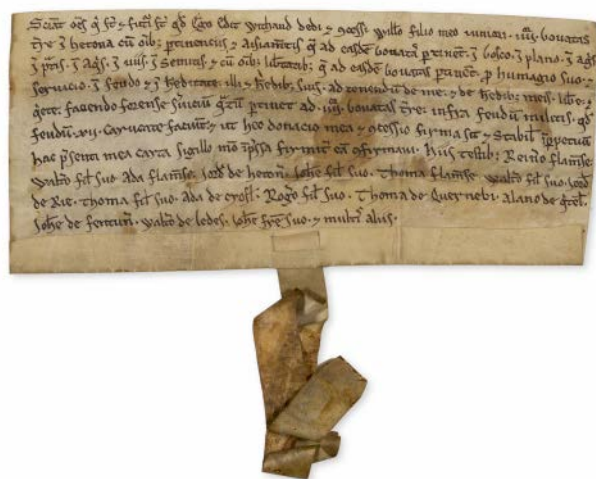 Sciāt om̄s q̄ st̄ ⁊ futi st̄ qd Ego Edit Withand dedi ⁊ ꝯcessi Willo filio meo iuniori iiii bouatas
t̄re ī hetona cū oib; ptinenciis ⁊ Aisiam̄tis q̄ ad easdē bouatas ptinēt ī bosco ī plano ī aqs
ī p̄tis ī uiis ī Semitis ⁊ cū oib; lib̄tatib; q̄ ad easdē bouatas ptinēt p humagio suo ⁊
seruicio ī feudo ⁊ ī h̄editate illi ⁊ h̄edib; suis ad tenendū de me ⁊ de h̄edib; meis lib̄e ⁊
q̄ete faciendo forense s̄uiciū q̄tū ptinet ad iiii bouatas t̄re infra feudum militis qd
feudū xii Carucate faciūt ⁊ ut hec donacio mea ⁊ ꝯcessio firma sit ⁊ Stabil' īppetuū
hac p̄senti mea carta sigillo mō īp̄ssa firmit̄ eā ꝯfirmaui Hiis testib; Rein̄o flam̄se
Walt̄o fil' suo Ada flam̄se Jord' de heton' Joh̄e fil' suo Thoma flam̄se Walt̄o fil' suo Jord'
de Rie Thoma fil' suo Ada de crosl' Roḡo fil' suo Thoma de Quernebi Alano de
Joh̄e de Walt̄o de ledes Joh̄e fr̄e suo ⁊ multis aliis